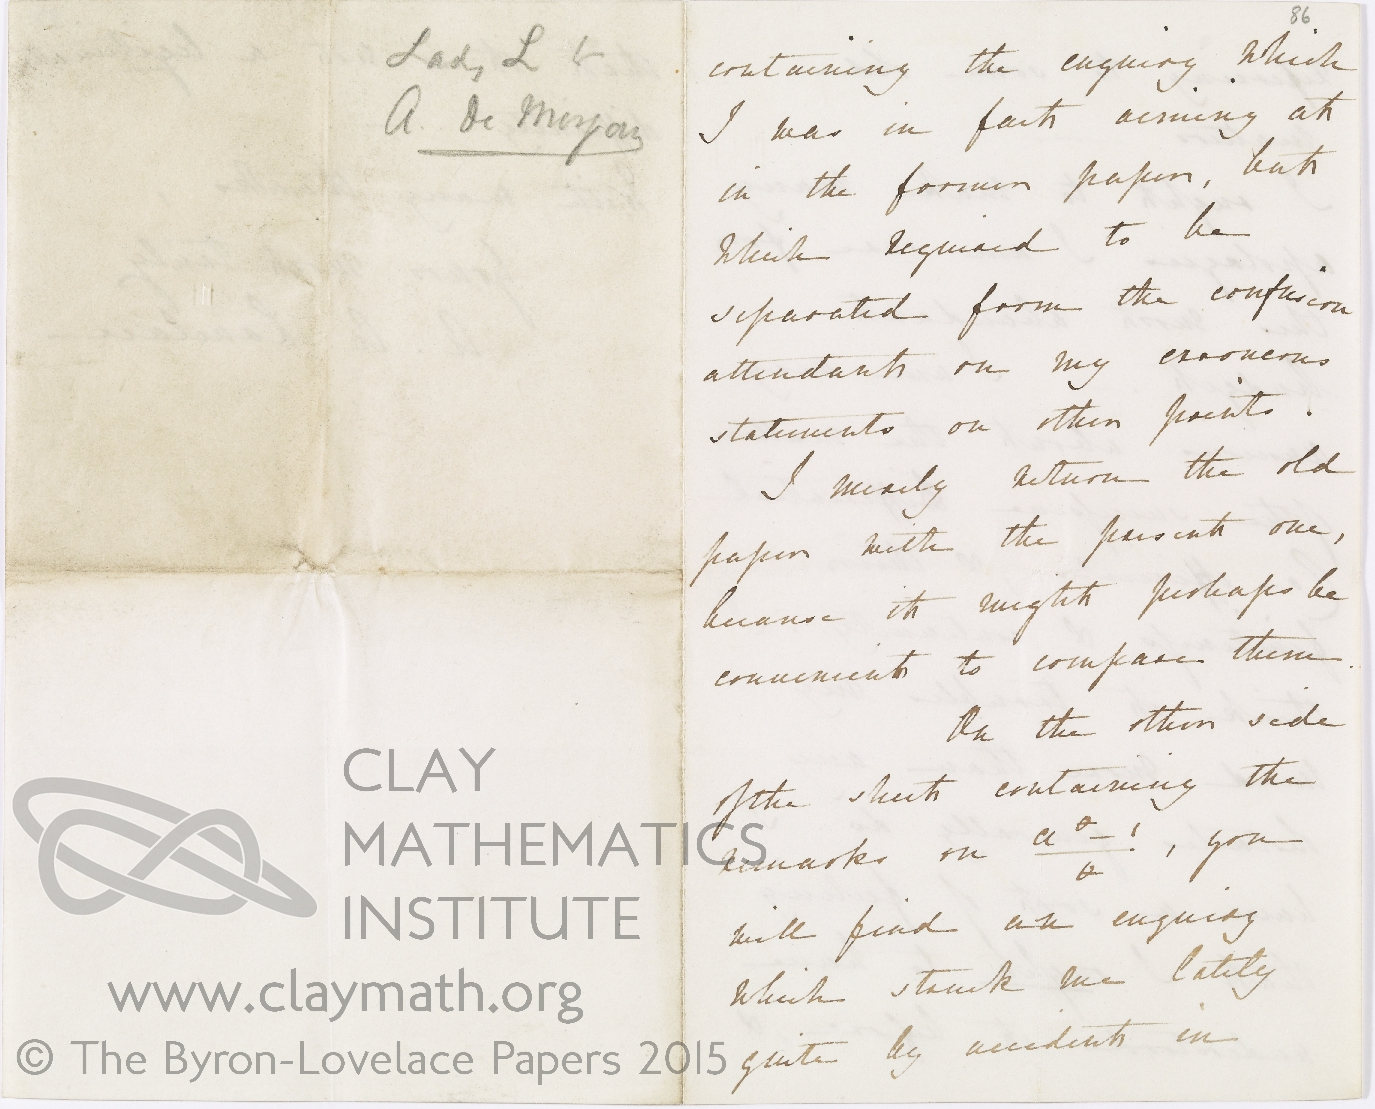 Lady L to
A. De Morgan
86
containing the enquiry which
I was in fact aiming at
in the former paper, but
which required to be
separated from the confusion
attendant on my erroneous
statements on other points.
I merely return the old
paper with the present one,
because it might perhaps be
convenient to compare them.
On the other side
of the sheet containing the
remarks on
, you
will find an enquiry
which struck me lately
quite by accident in
CLAY
MATHEMATICS
INSTITUTE
www.claymath.org
© The Byron-Lovelace Papers 2015